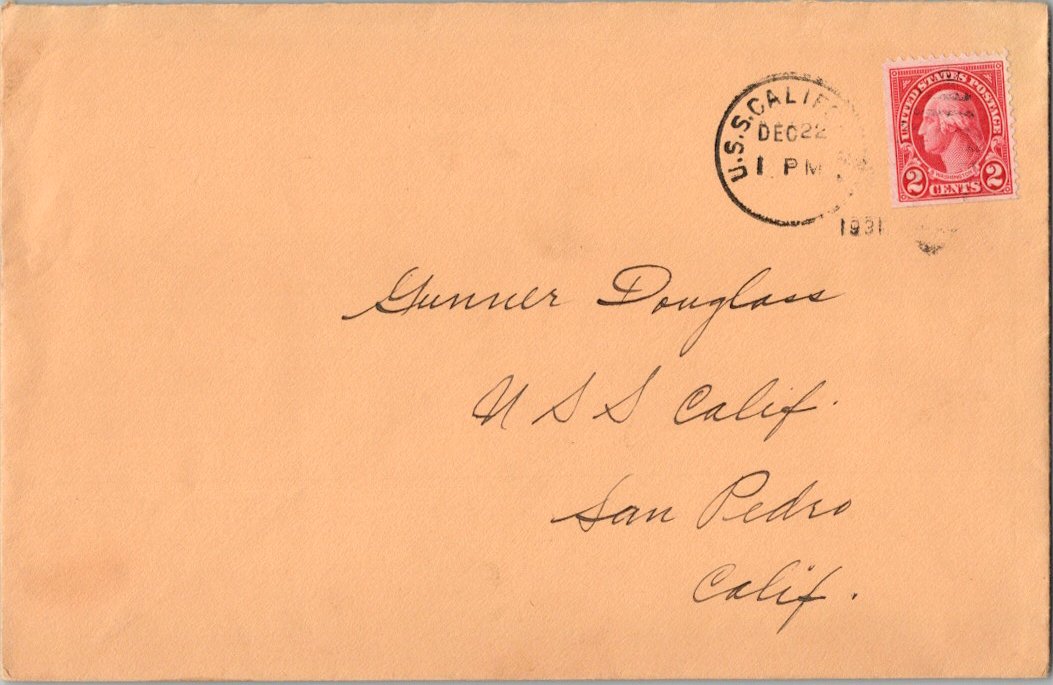 U.S.S. CALIF
DEC 22
1 PM
1931
UNITED STATES POSTAGE
WASHINGTON
2 CENTS 2
Gunner Douglass
U S S Calif.
San Pedro
Calif.